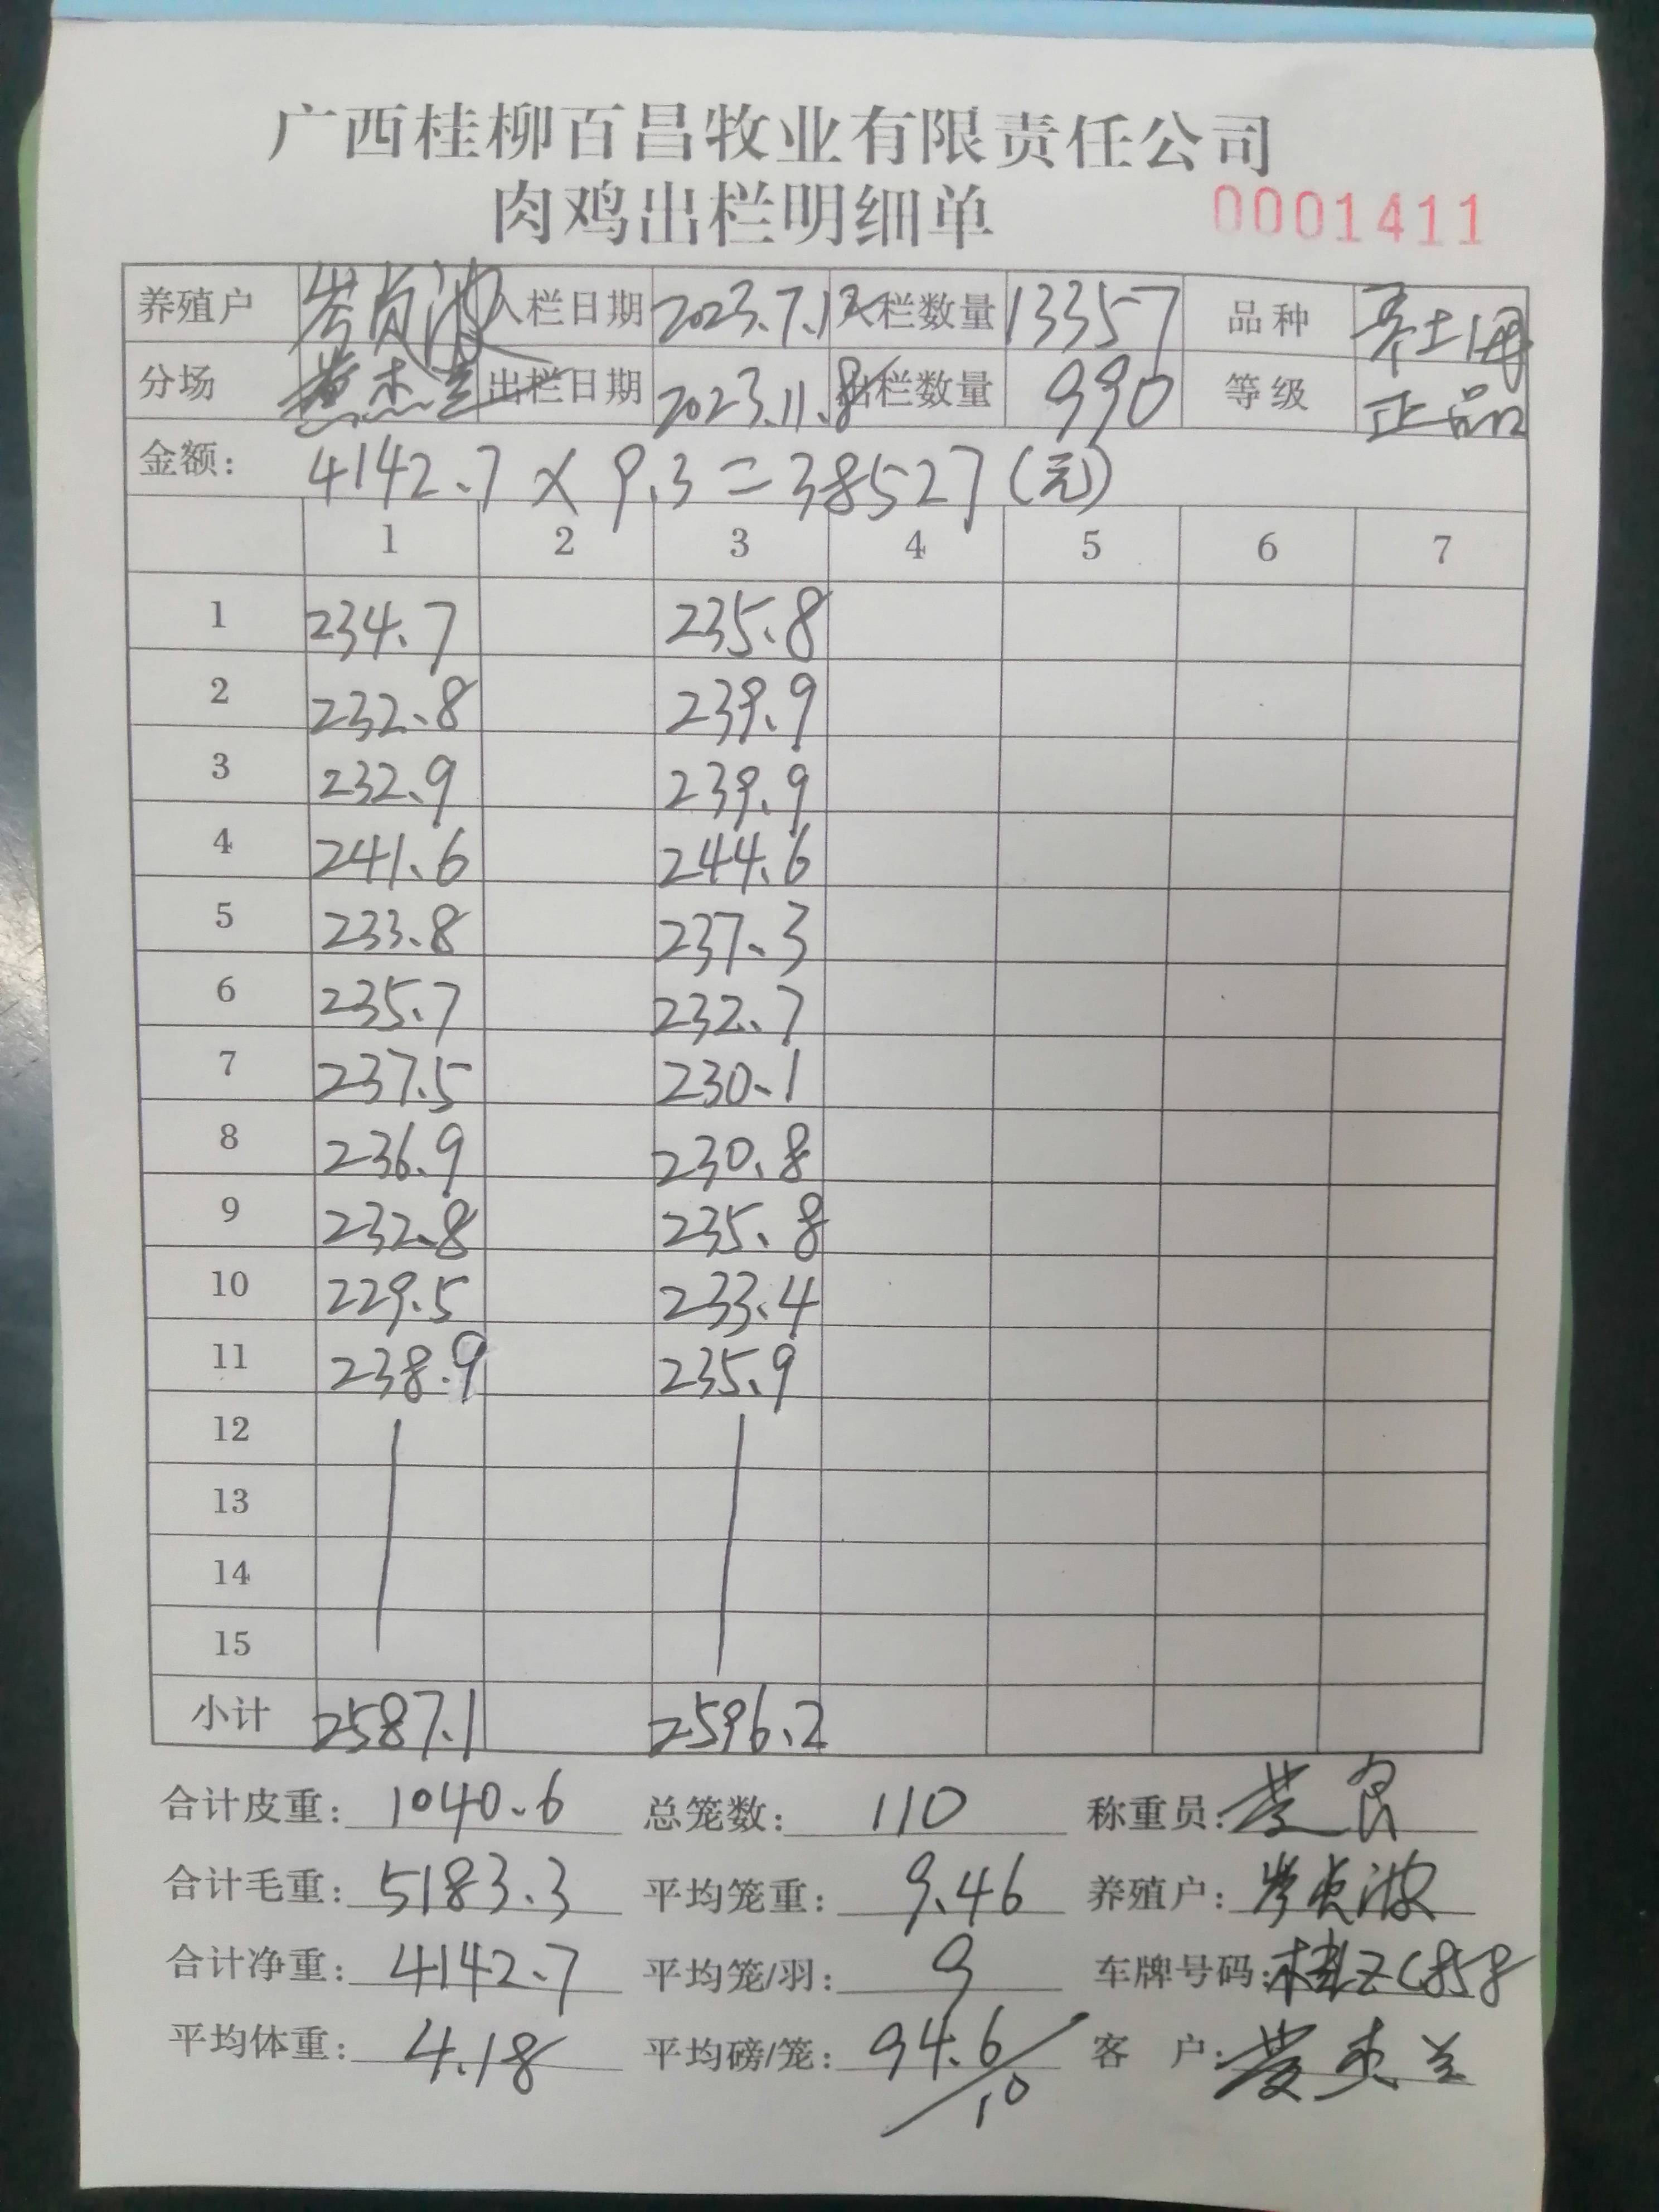 广西桂柳百昌牧业有限责任公司
肉鸡出栏明细单 0001411
养殖户 入栏日期 2023.7.13 入栏数量 13357 品种
分场 黄杰兰 出栏日期 2023.11.8 出栏数量 990 等级 正品
金额: 4142.7 × 9.3 = 38527(元)
1 2 3 4 5 6 7
1 234.7 235.8
2 232.8 239.9
3 232.9 239.9
4 241.6 244.6
5 233.8 237.3
6 235.7 232.7
7 237.5 230.1
8 236.9 230.8
9 232.8 235.8
10 229.5 233.4
11 238.9 235.9
12
13
14
15
小计 2587.1 2596.2
合计皮重: 1040.6 总笼数: 110 称重员:
合计毛重: 5183.3 平均笼重: 9.46 养殖户:
合计净重: 4142.7 平均笼/羽: 9 车牌号码: 桂ZC858
平均体重: 4.18 平均磅/笼: 94.6/10 客户: 黄杰兰